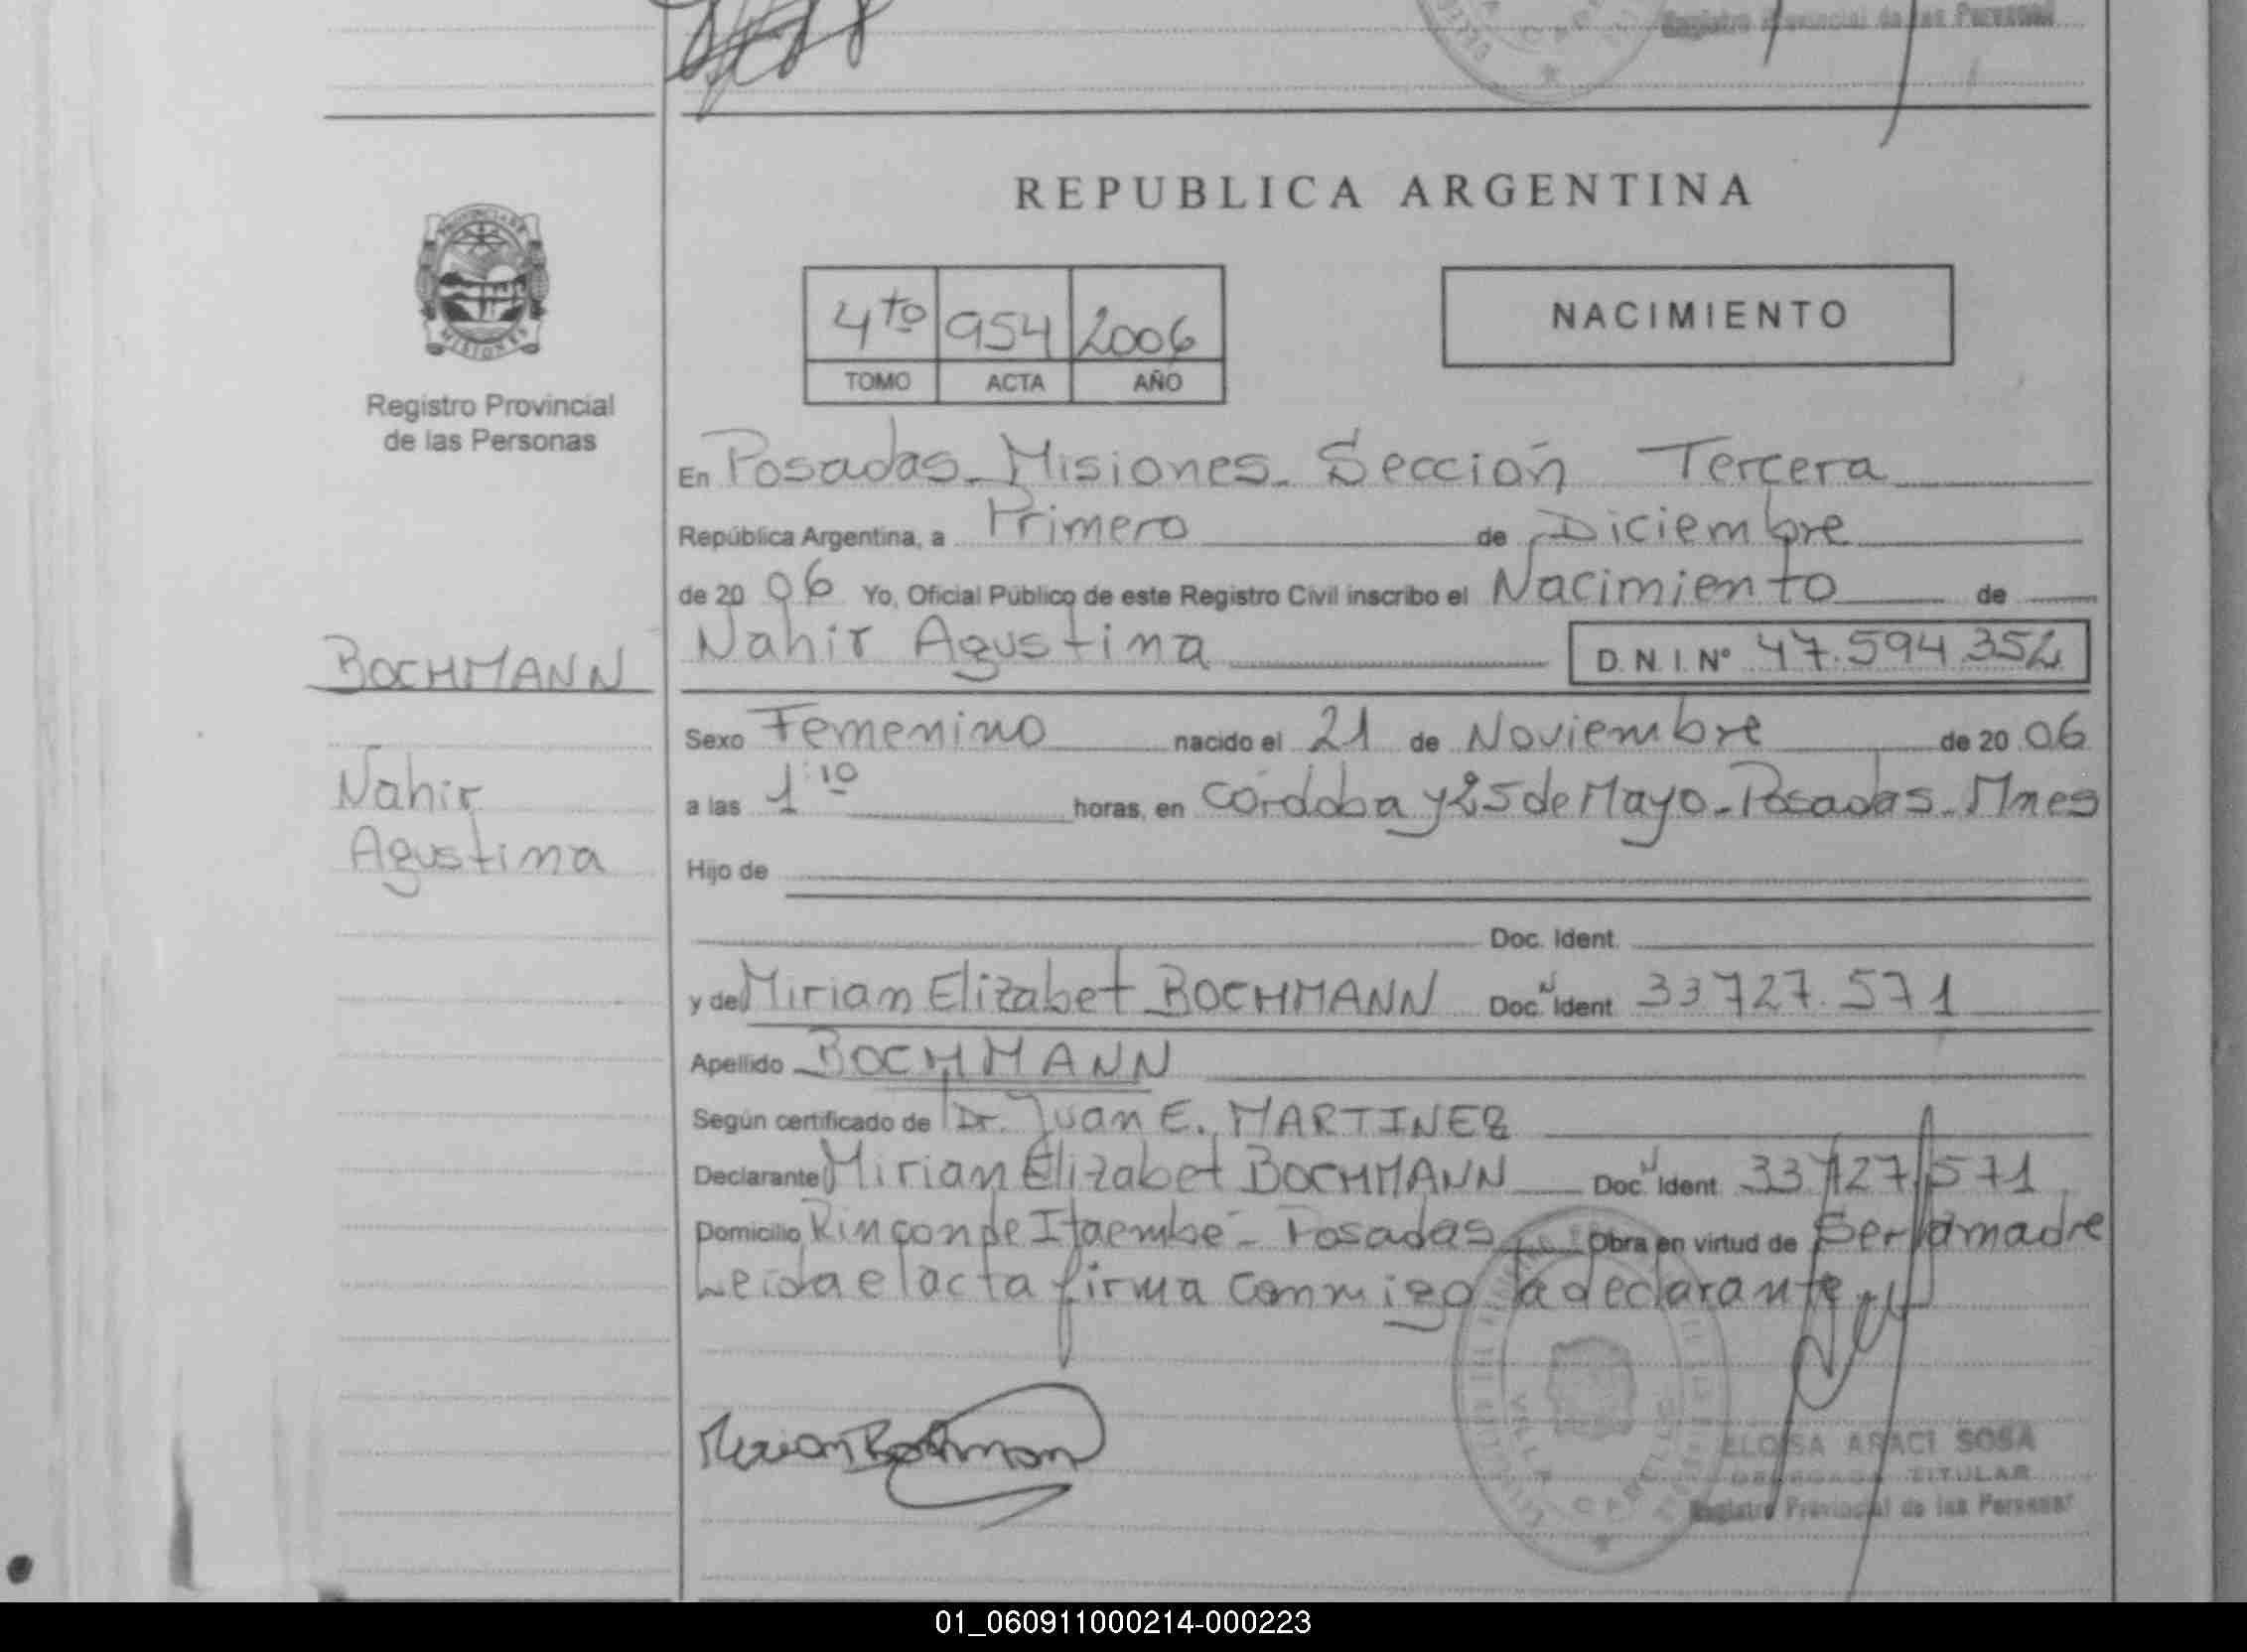 Registro Provincial de las Personas
REPUBLICA ARGENTINA
PROVINCIA DE
MISIONES
Registro Provincial
de las Personas
4to 954 2006
TOMO ACTA AÑO
NACIMIENTO
En Posadas - Misiones - Sección Tercera
República Argentina, a Primero de Diciembre
de 20 06 Yo, Oficial Público de este Registro Civil inscribo el Nacimiento de
Nahir Agustina D.N.I. Nº 47.594.352
BOCHMANN
Nahir
Agustina
Sexo Femenino nacido el 21 de Noviembre de 20 06
a las 1:10 horas, en Córdoba y 25 de Mayo - Posadas - Mnes
Hijo de
Doc. Ident.
y de Mirian Elizabet BOCHMANN Doc. N Ident 33727.571
Apellido BOCHMANN
Según certificado de Dr. Juan E. MARTINEZ
Declarante Mirian Elizabet BOCHMANN Doc. N Ident 33727.571
Domicilio Rincon de Itaembé - Posadas Obra en virtud de Ser la madre
Leida el acta firma conmigo la declarante
Mirian Bochmann
ELOISA ARACI SOSA
DELEGADA TITULAR
Registro Provincial de las Personas
01_060911000214-000223